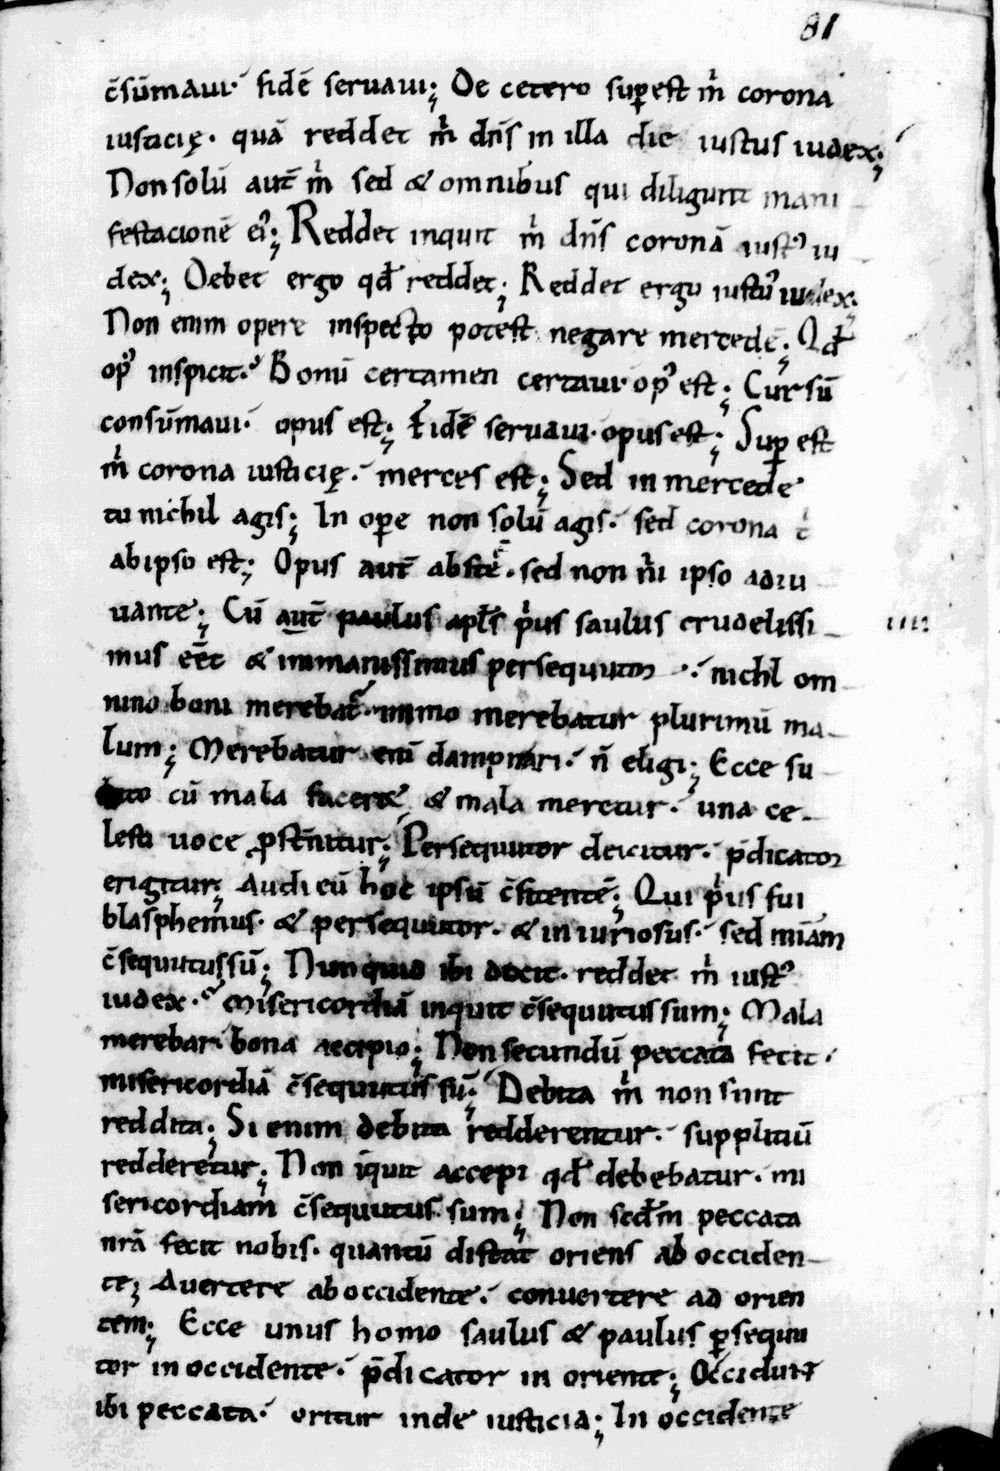 81
c̄sūmaui· fidē seruaui; De cetero suꝑest m̄ corona
iusticię· quā reddet m̄ dn̄s in illa die iustus iudex;
Non solū aut̄ m̄ sed & omnibus qui diligunt mani
festacionē ei'; Reddet inquit m̄ dn̄s coronā iust' iu
dex; Debet ergo qd̄ reddet; Reddet ergo iustū iudex.
Non enim opere inspecto potest negare mercedē; Qd̄
op' inspicit· Bonū certamen certaui op' est; Cursū
consūmaui· opus est; Fidē seruaui· opus est; Suꝑ est
m̄ corona iusticię· merces est; Sed in mercede
tu nichil agis; In oꝑe non solū agis· sed corona t̄
ab ipso est; Opus aut̄ abs te· sed non n̄ ipso adiu
uante; Cū aut̄ paulus apl̄s p̄us saulus crudelissi
iiii
mus ēēt & immanissimus persequutor · nichl om
nino boni merebat᷑ immo merebatur plurimū ma
lum; Merebatur enī dampnari· n̄ eligi; Ecce su
bito cū mala faceret & mala meretur· una ce
lesti uoce ꝓst̄nitur; Persequutor deicitur· p̄dicator
erigitur; Audi eū hoc ipsū c̄fitentē; Qui p̄us fui
blasphemus· & persequutor· & iniuriosus· sed mīam
c̄sequutus sū; Nunquid ibi dicit· reddet m̄ iust'
iudex· Misericordiā inquit c̄sequutus sum; Mala
merebar· bona accipio; Non secundū peccata fecit·
misericordiā c̄sequutus sū; Debita m̄ non sunt
reddita; Si enim debita redderentur· supplitiū
redderetur; Non īquit accepi qd̄ debebatur· mi
sericordiam c̄sequutus sum; Non sed̄m peccata
nrā fecit nobis· quantū distat oriens ab occiden
te; Auertere ab occidente· conuertere ad orien
tem; Ecce unus homo saulus & paulus ꝑsequu
tor in occidente· p̄dicator in oriente; Occidunt
ibi peccata· oritur inde iusticia; In occidente